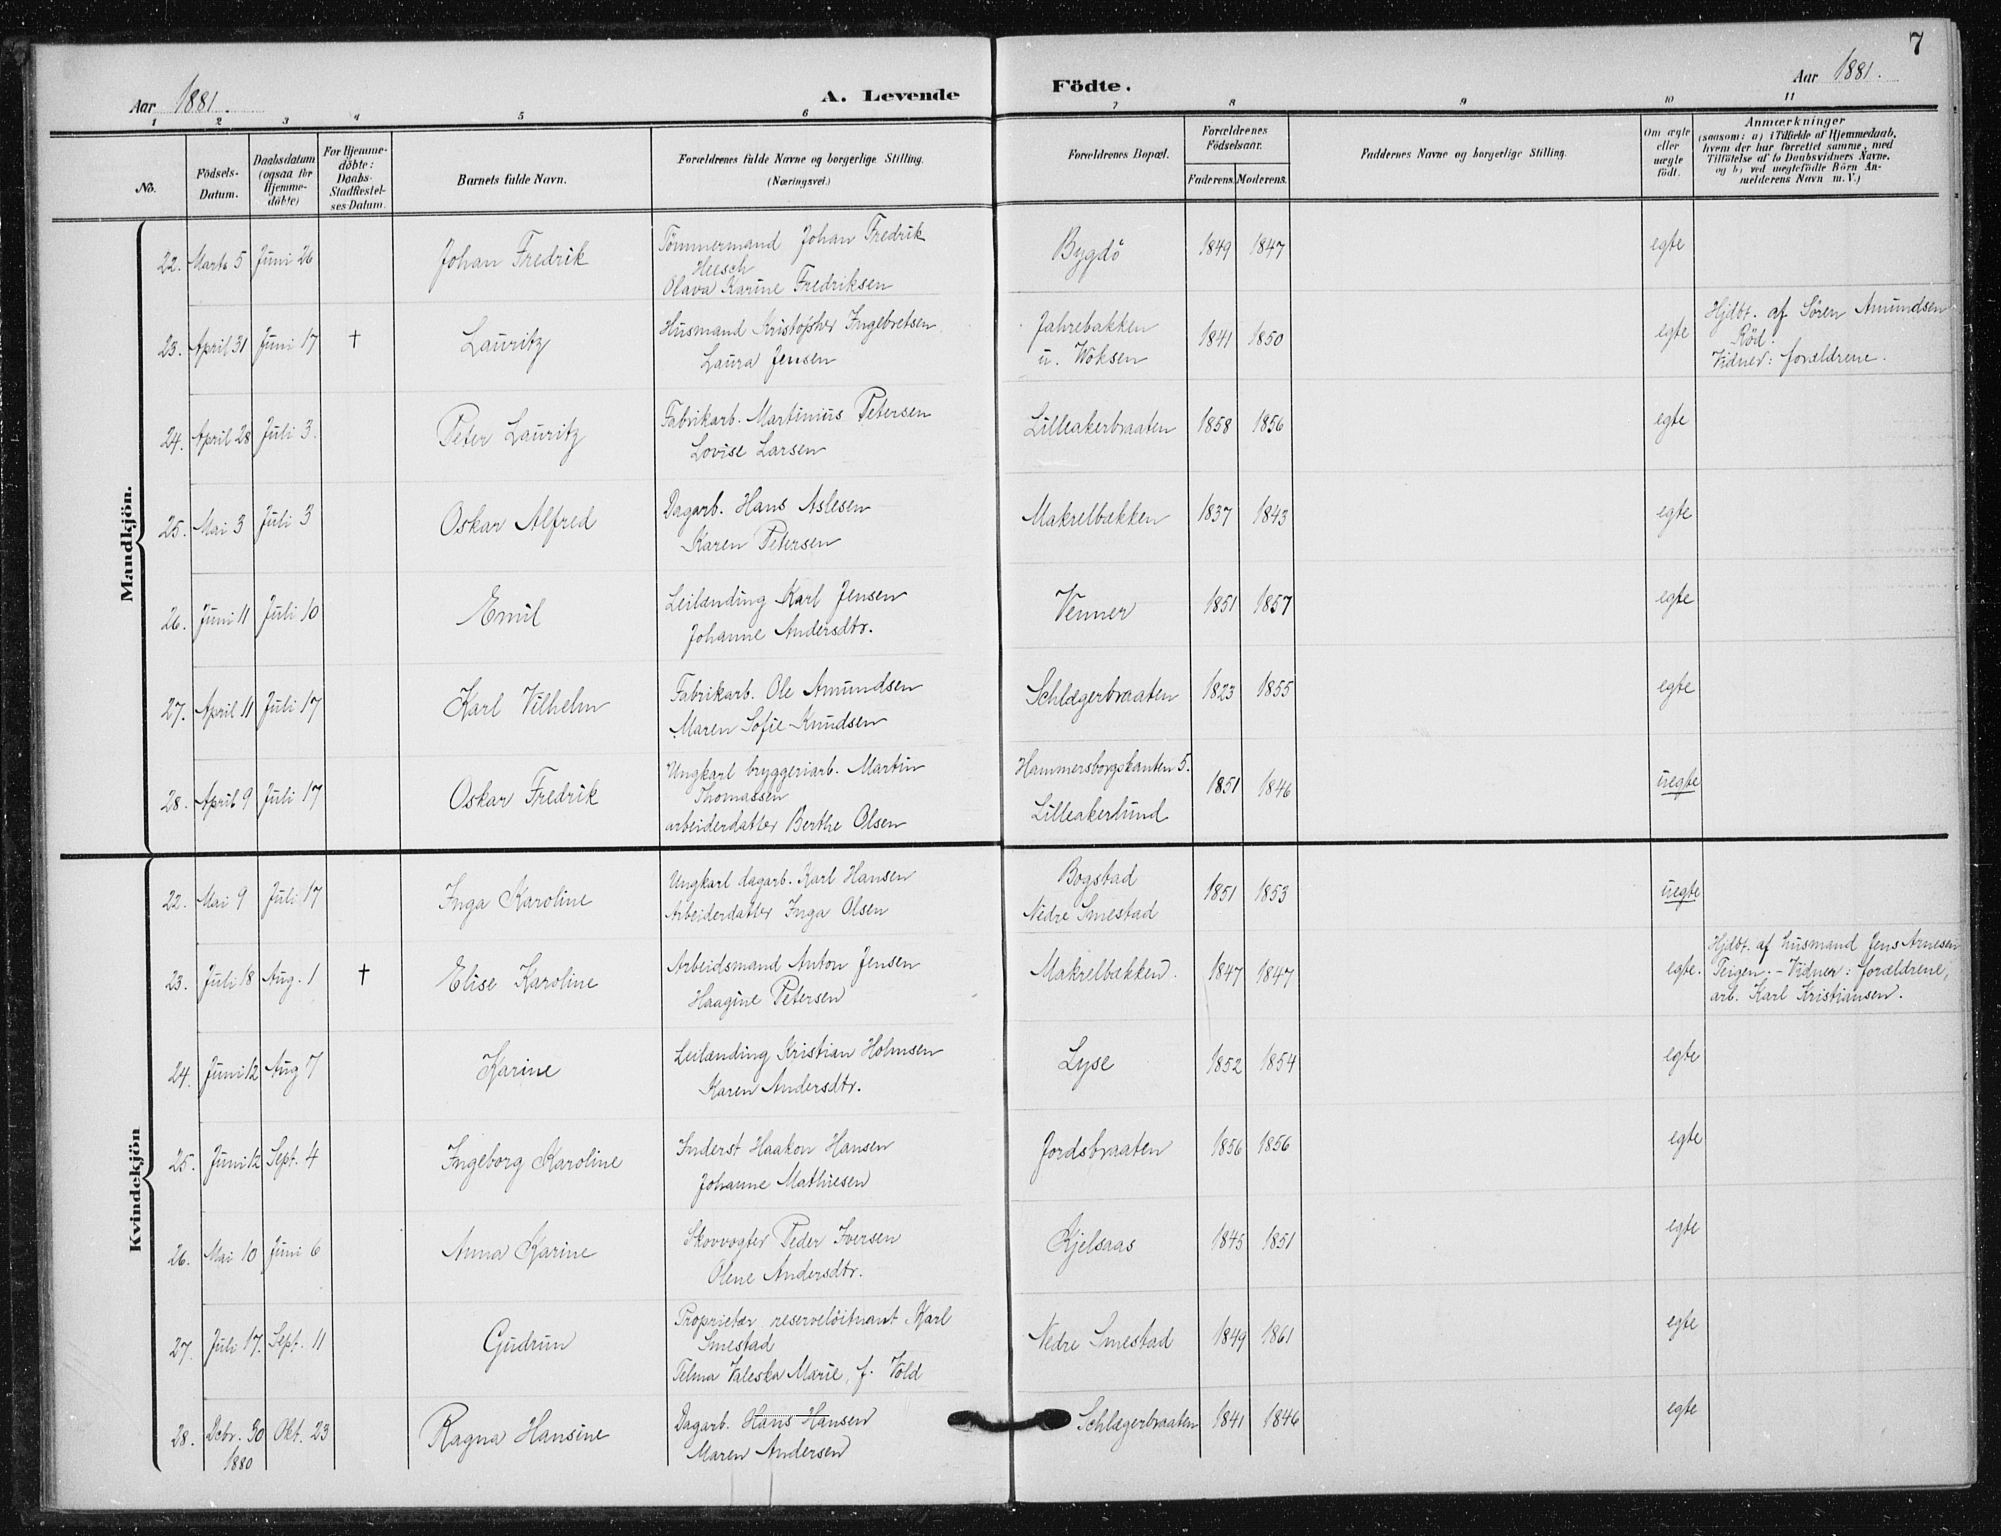 7
Aar 1881.
A. Levende Födte.
Aar 1881.
1 2 3 4 5 6 7 8 9 10 11
No.
Födsels-Datum.
Daabsdatum (ogsaa for Hjemme-döbte)
For Hjemme-döbte: Daabs-Stadfæstel-ses Datum.
Barnets fulde Navn.
Forældrenes fulde Navne og borgerlige Stilling. (Næringsvei.)
Forældrenes Bopæl.
Forældrenes Födselsaar.
Faderens. Moderens.
Faddernes Navne og borgerlige Stilling.
Om ægte eller uægte födt.
Anmærkninger
(saasom: a) i Tilfælde af Hjemmedaab, hvem der har forrettet samme, med Tilföielse af to Daabsvidners Navne, og b) ved uægtefödte Börn An-melderens Navn m. V.)
Mandkjön.
22. Marts 5 Juni 26 Johan Fredrik Tömmermand Johan Fredrik Bygdö 1849 1847 egte
Heesch
Olava Karine Fredriksen
23. April 31 Juni 17 † Lauritz Husmand Kristopher Ingebretsen Jahrebakken 1841 1850 egte Hjdbt. af Sören Amundsen
Laura Jensen u. Woksen Röd.
Vidner: forældrene.
24. April 28 Juli 3. Peter Lauritz Fabrikarb. Martinius Petersen Lilleakerbraaten 1858 1856 egte
Lovise Larsen
25. Mai 3 Juli 3 Oskar Alfred Dagarb. Hans Aslesen Makrelbækken 1837 1843 egte
Karen Petersen
26. Juni 11 Juli 10 Emil Leilænding Karl Jensen Venner 1851 1857 egte
Johanne Andersdtr.
27. April 11 Juli 17 Karl Vilhelm Fabrikarb. Ole Amundsen Schlægerbraaten 1823 1855 egte
Maren Sofie Knudsen
28. April 9 Juli 17 Oskar Fredrik Ungkarl bryggeriarb. Martin Hammersborgskanten 5. 1851 1846 uegte
Thomassen
arbeiderdatter Berthe Olsen Lilleakerlund
Kvindekjön
22. Mai 9 Juli 17 Inga Karoline Ungkarl dagarb. Karl Hansen Bogstad 1851 1853 uegte
Arbeiderdatter Inga Olsen Nedre Smestad
23. Juli 18 Aug. 1 † Elise Karoline Arbeidsmand Anton Jensen Makrelbækken. 1847 1847 egte. Hjdbt. af husmand Jens Arnesen
Haagine Petersen Teigen. - Vidner: forældrene,
arb. Karl Kristiansen.
24. Juni 12 Aug 7 Karine Leilænding Kristian Holmsen Lyse 1852 1854 egte
Karen Andersdtr.
25. Juni 12 Sept. 4 Ingeborg Karoline Inderst Haakon Hansen Jordsbraaten 1856 1856 egte
Johanne Mathiesen
26. Mai 10 Juni 6 Anna Karine Skovvogter Peder Iversen Kjelsaas 1845 1851 egte
Olene Andersdtr.
27. Juli 17. Sept. 11 Gudrun Proprietær reservelöitnant Karl Nedre Smestad 1849 1861 egte
Smestad
Telma Valeska Marie, f. Vold
28. Dcbr. 30 Okt. 23 Ragna Hansine Dagarb. Hans Hansen Schlægerbraaten 1841 1846 egte
1880 Maren Andersen